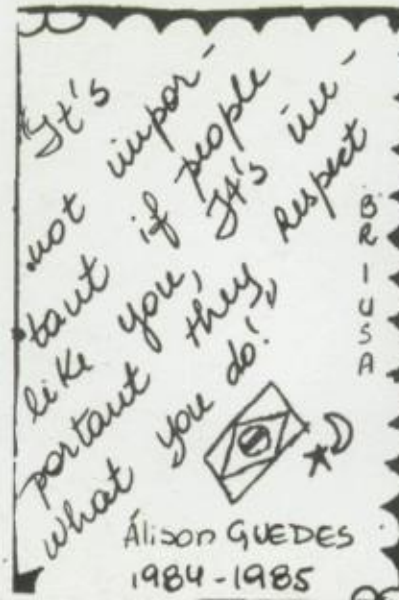 "It's
not impor-
tant if people
like you, It's im-
portant they respect
what you do!"
BRIUSA
Álison GUEDES
1984-1985